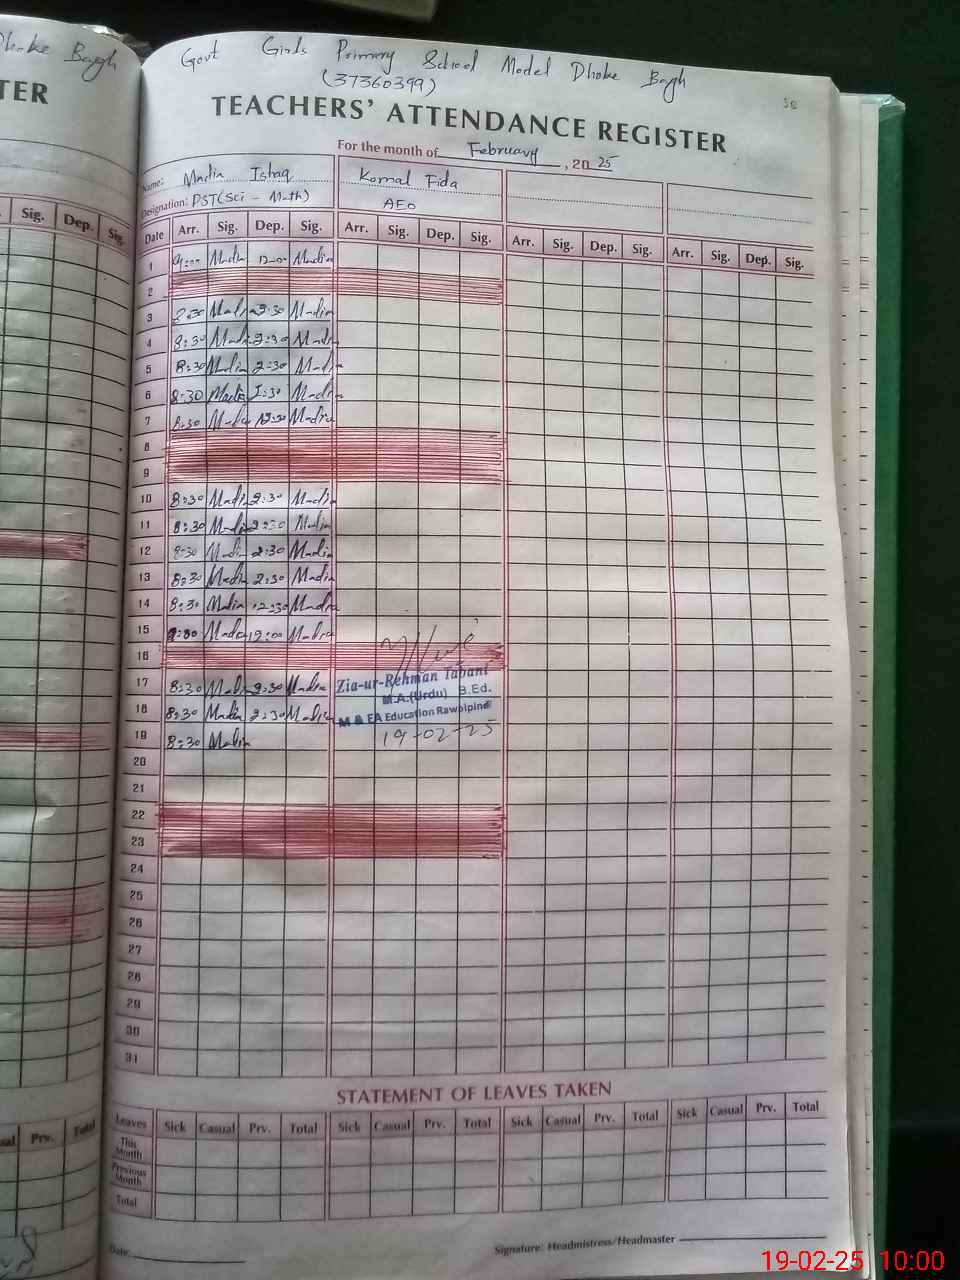 Dhoke Bagh
TER
Sig. Dep. Sig.
Govt Girls Primary School Model Dhoke Bagh
(37360399)
TEACHERS' ATTENDANCE REGISTER
For the month of February, 2025
Name: Madia Ishaq Komal Fida
Designation: PST(Sci - Math) AEO
Date Arr. Sig. Dep. Sig. Arr. Sig. Dep. Sig. Arr. Sig. Dep. Sig. Arr. Sig. Dep. Sig.
1 9:00 Madia 12:00 Madia
2
3 Madia 2:30 Madia
4 8:30 Madia 2:30 Madia
5 8:30 Madia 2:30 Madia
6 8:30 Madia 1:30 Madia
7 8:30 Madia Madia
8
9
10 8:30 Madia 2:30 Madia
11 8:30 Madia 2:30 Madia
12 8:30 Madia 2:30 Madia
13 8:30 Madia 2:30 Madia
14 8:30 Madia 2:30 Madia
15 Madia 12:00 Madia
16
17 8:30 Madia 2:30 Madia Zia-ur-Rehman Tabani
M.A.(Urdu) B.Ed.
18 8:30 Madia 2:30 Madia M & EA Education Rawalpindi
19 8:30 Madia 19-02-25
20
21
22
23
24
25
26
27
28
29
30
31
STATEMENT OF LEAVES TAKEN
Leaves Sick Casual Prv. Total Sick Casual Prv. Total Sick Casual Prv. Total Sick Casual Prv. Total
This Month
Previous Month
Total
Prv. Total
Date:
Signature: Headmistress/Headmaster
19-02-25 10:00